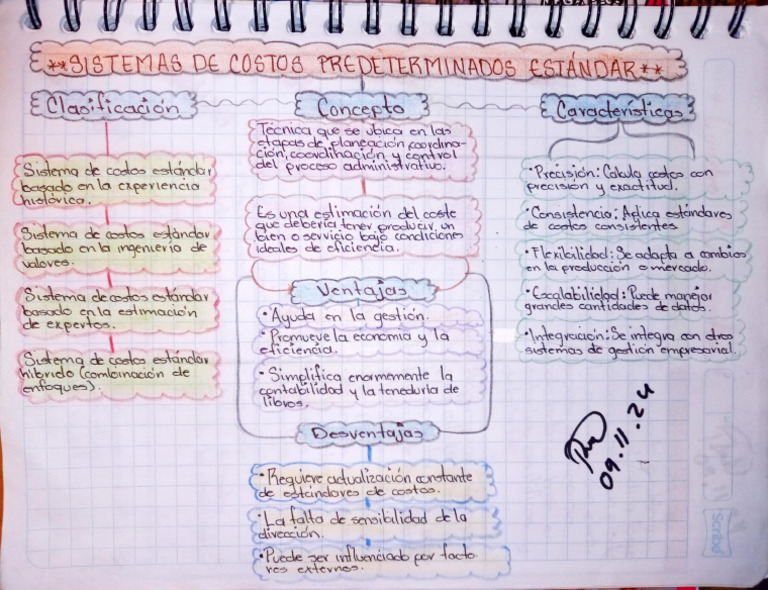 **SISTEMAS DE COSTOS PREDETERMINADOS ESTÁNDAR**
Clasificación
Sistema de costos estándar
basado en la experiencia
histórica.
Sistema de costos estándar
basado en la ingeniería de
valores.
Sistema de costos estándar
basado en la estimación
de expertos.
Sistema de costos estándar
híbrido (combinación de
enfoques).
Concepto
Técnica que se ubica en las
etapas de, planeación, coordina-
ción, coordinación, y control
del proceso administrativo.
Es una estimación del coste
que debería tener producir, un
bien o servicio bajo condiciones
ideales de eficiencia.
Ventajas
• Ayuda en la gestión.
• Promueve la economía y la
eficiencia.
• Simplifica enormemente la
contabilidad y la teneduría de
libros.
Desventajas
• Requiere actualización constante
de estándares de costos.
• La falta de sensibilidad de la
dirección.
• Puede ser influenciado por facto
res externos.
Características
• Precisión: Calcula costos con
precisión y exactitud.
• Consistencia: Aplica estándares
de costos consistentes
• Flexibilidad: Se adapta a cambios
en la producción o mercado.
• Escalabilidad: Puede manejar
grandes cantidades de datos.
• Integración: Se integra con otros
sistemas de gestión empresarial.
09.11.24
Scribe